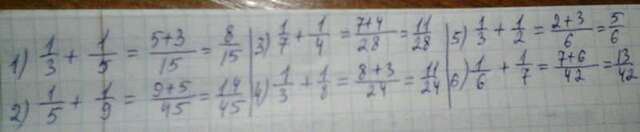 1) 1/3 + 1/5 = 5+3/15 = 8/15
2) 1/5 + 1/9 = 9+5/45 = 14/45
3) 1/7 + 1/4 = 7+4/28 = 11/28
4) 1/3 + 1/8 = 8+3/24 = 11/24
5) 1/3 + 1/2 = 2+3/6 = 5/6
6) 1/6 + 1/7 = 7+6/42 = 13/42